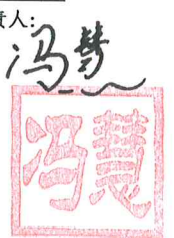 责人:
冯慧
冯慧